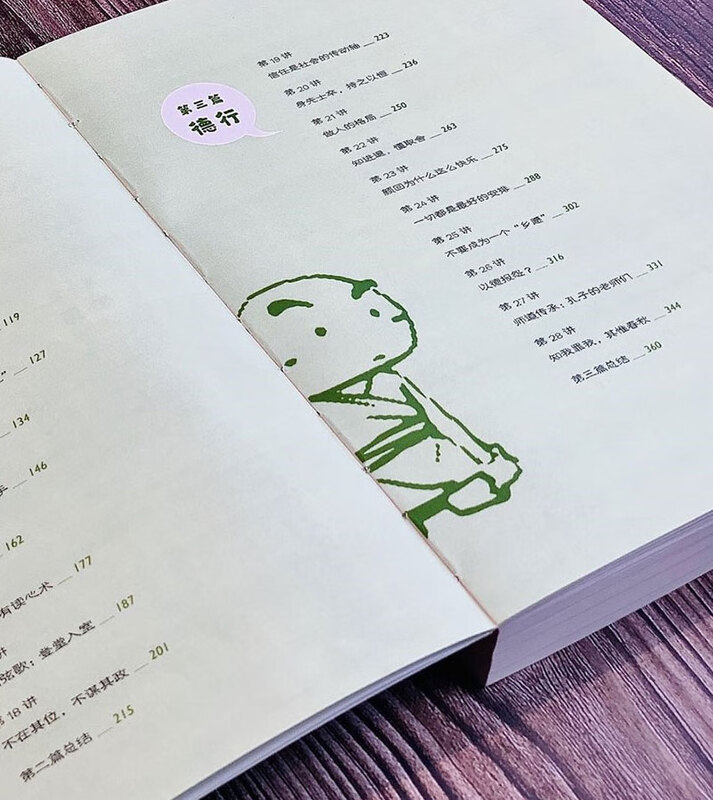 119
127
134
146
162
有读心术 — 177
弦歌：登堂入室 — 187
第 18 讲
不在其位，不谋其政 — 201
第二篇总结 — 215
第三篇
德行
第 19 讲
信任是社会的传动轴 — 223
第 20 讲
身先士卒，持之以恒 — 236
第 21 讲
做人的格局 — 250
第 22 讲
知进退，懂取舍 — 263
第 23 讲
颜回为什么这么快乐 — 275
第 24 讲
一切都是最好的安排 — 288
第 25 讲
不要成为一个“乡愿” — 302
第 26 讲
以德报怨？ — 316
第 27 讲
师道传承：孔子的老师们 — 331
第 28 讲
知我罪我，其惟春秋 — 344
第三篇总结 — 360